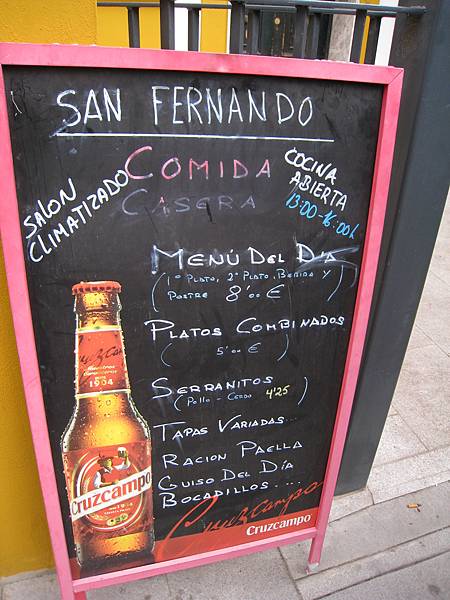 SAN FERNANDO
COMIDA
CASERA
SALON
CLIMATIZADO
COCINA
ABIERTA
13:00-16:00h
MENÚ DEL DÍA
(1º PLATO, 2º PLATO, BEBIDA Y
POSTRE 8'00 €)
PLATOS COMBINADOS
(5'00 €)
SERRANITOS
(POLLO - CERDO 4'25)
TAPAS VARIADAS...
RACION PAELLA
GUISO DEL DÍA
BOCADILLOS...
Cruzcampo
Cruzcampo
1904
Cruzcampo
1904
Cruzcampo